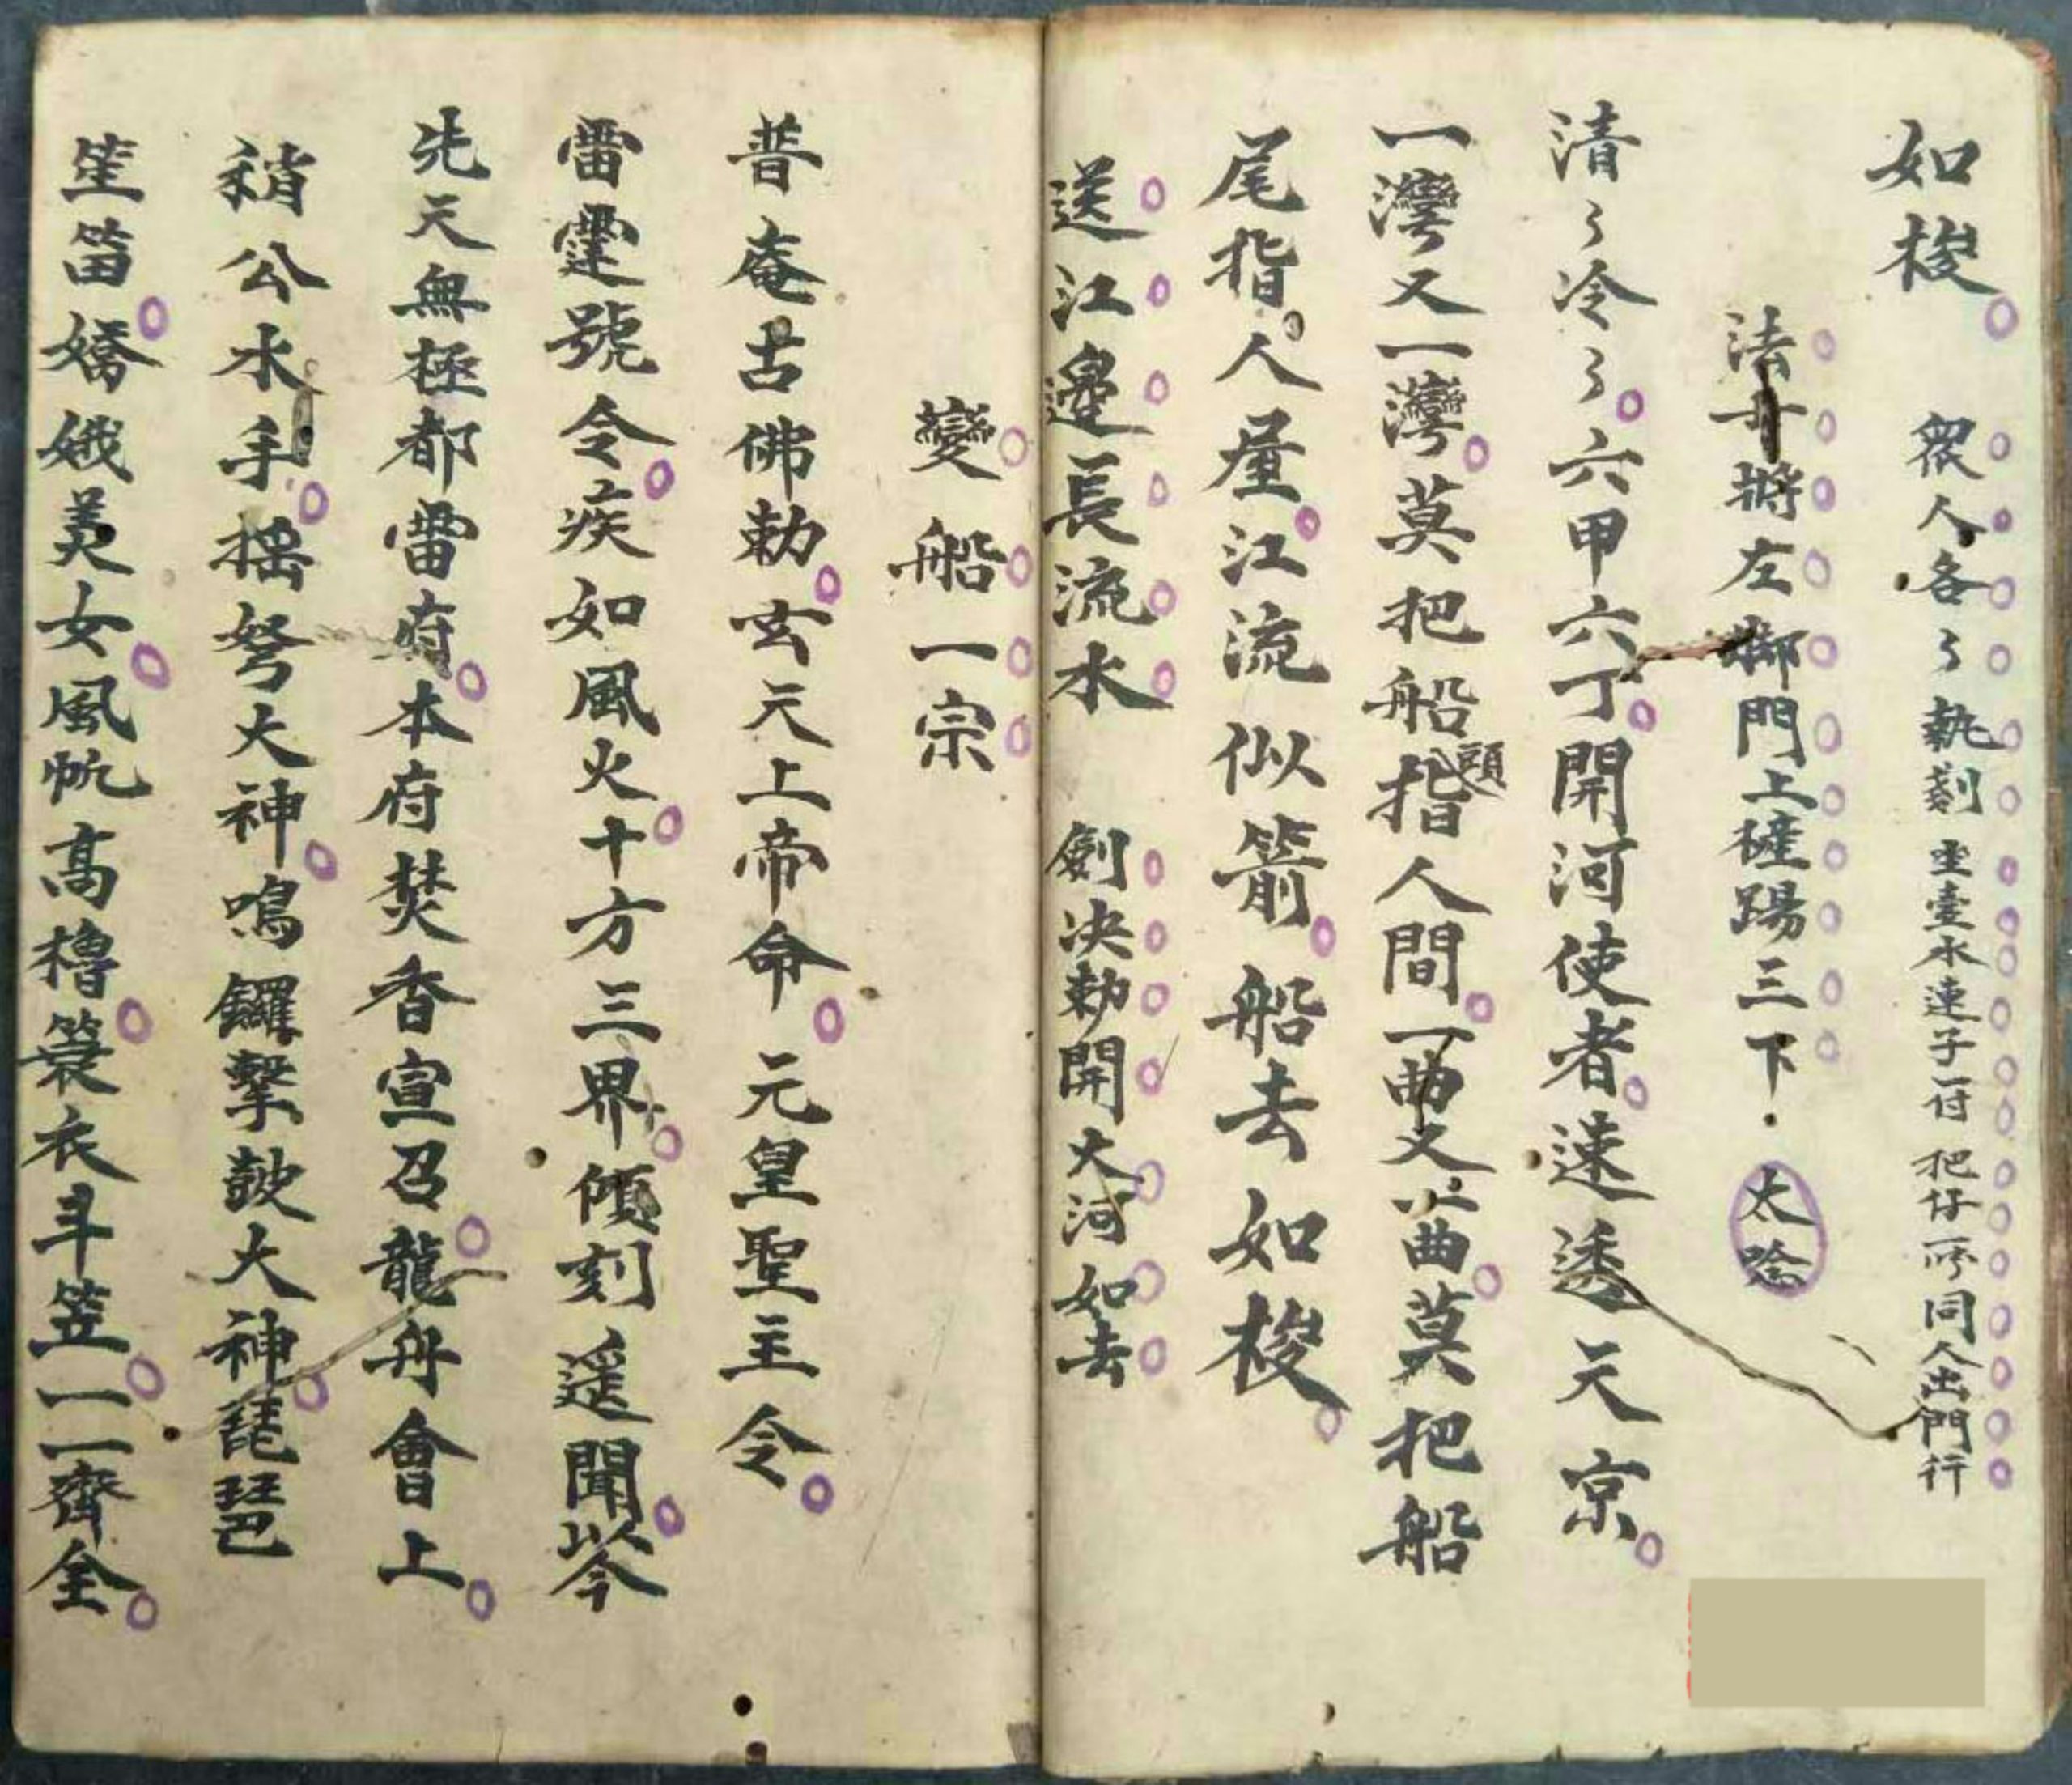 如梭 眾人各々執剑 坐臺水連子一付 把仔一吓同人出門行
法子將左脚門上撻踢三下 太
清々冷々六甲六丁開河使者速透天京
一灣又一灣莫把船頭指人間一曲又曲莫把船
尾指人屋江流似箭船去如梭
送江邊長流水 劍决勅開大河如去
變船一宗
普庵古佛勅玄天上帝命元皇聖主令
雷霆號令疾如風火十方三界傾刻遥聞
先天無極都雷府本府焚香宣召龍舟會上
稍公水手摇弩大神鳴鑼擊皷大神琵琶
笙笛嬌娥美女風帆高櫓簑衣斗笠一一齊全